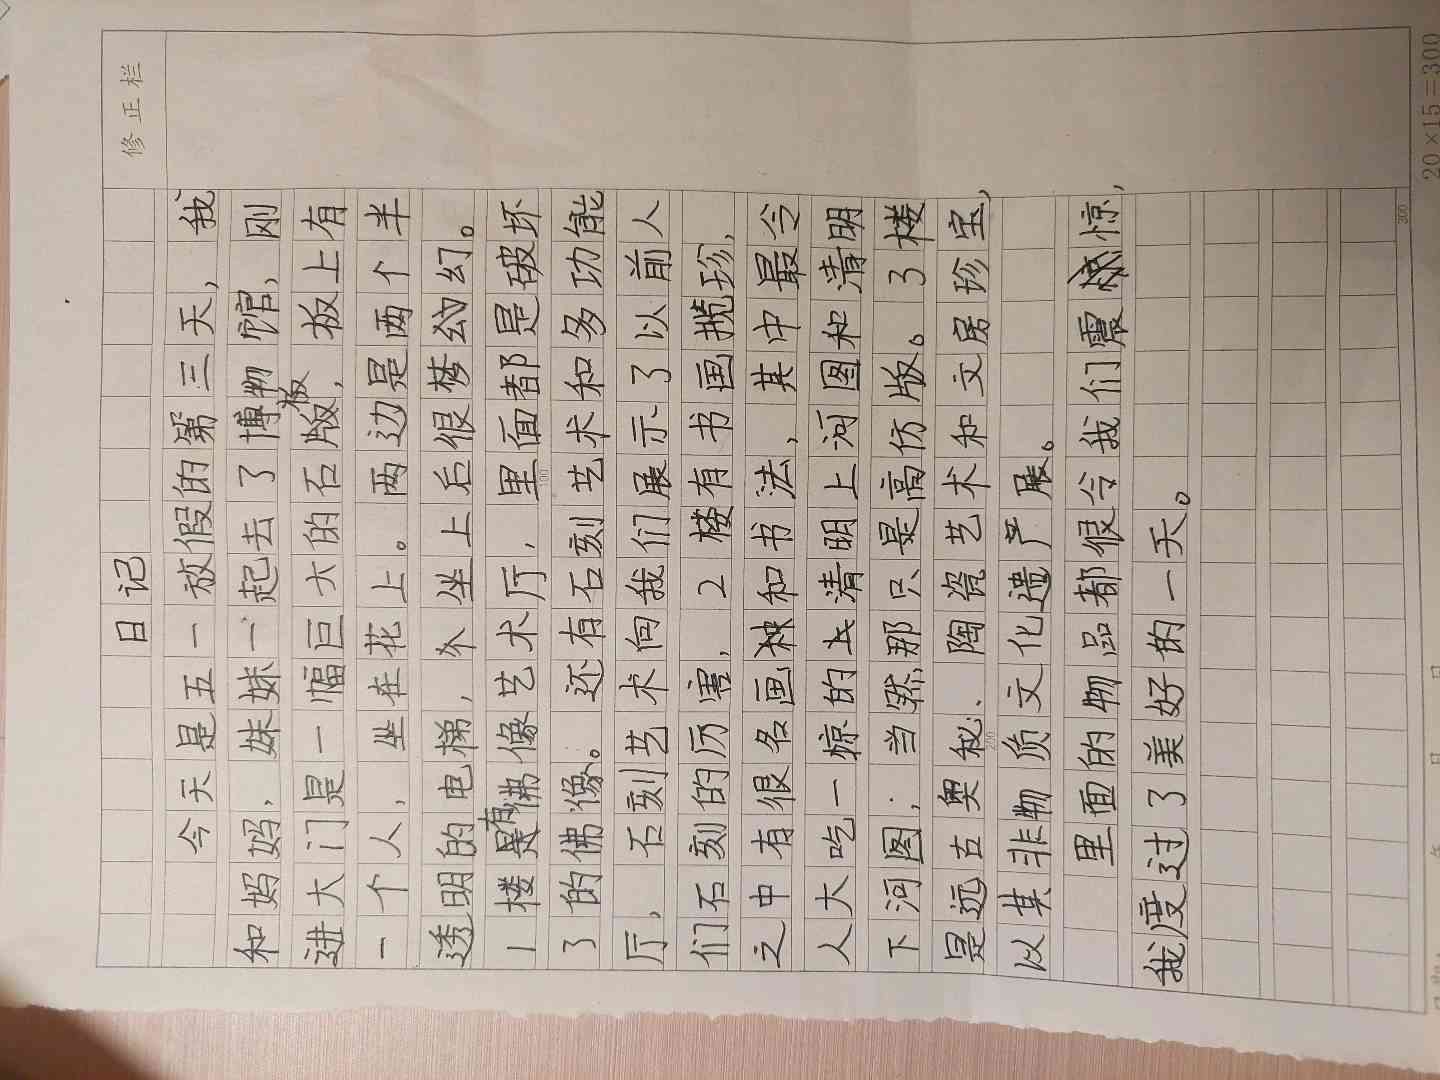 修正栏
日记
今天是五一放假的第三天，我
和妈妈，妹妹一起去了博物馆，刚
进大门是一幅巨大的石版，板上有
板
一个人，坐在花上。两边是两个半
透明的电梯，坐上后很梦幻。
1楼有佛像艺术厅，里面都是破坏
了的佛像。还有石刻艺术和多功能
厅，石刻艺术向我们展示了以前人
们石刻的厉害，2楼有书画揽珍，
之中有很名画和书法，其中最令
人大吃一惊的清明上河图和清明
下河图；当然那只是高仿版。3楼
是远古奥秘、陶瓷艺术和文房珍宝，
以其非物质文化遗产展。
里面的物品都很令我们震惊，
我度过了美好的一天。
100
200
300
20×15=300